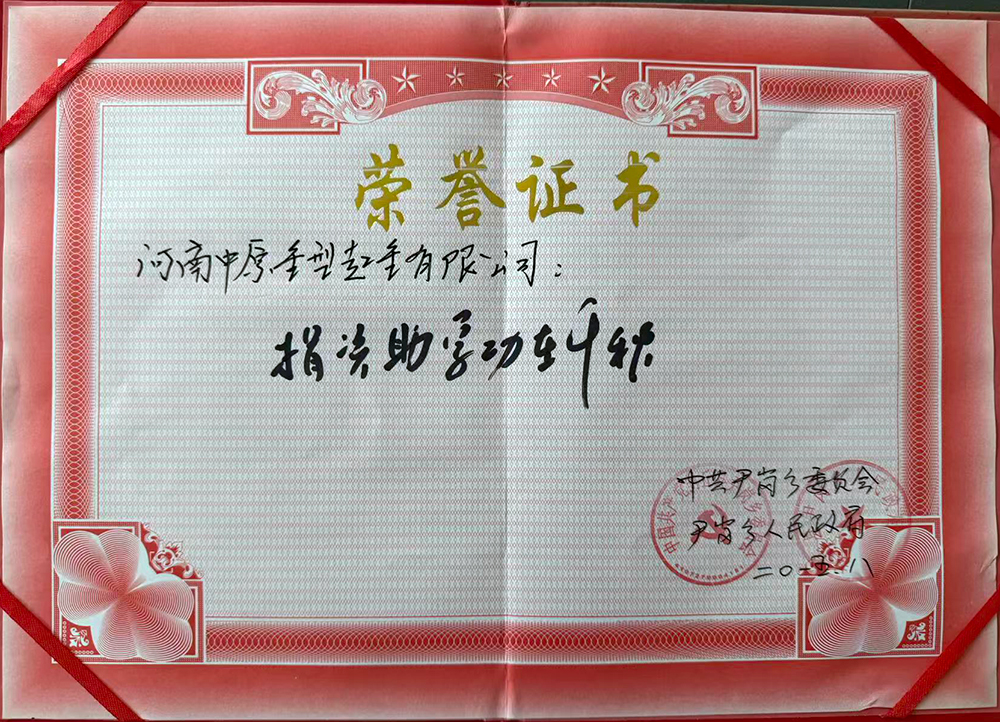 荣誉证书
河南中原重型起重有限公司：
捐资助学功在千秋
中共尹岗乡委员会
尹岗乡人民政府
二〇一五.八